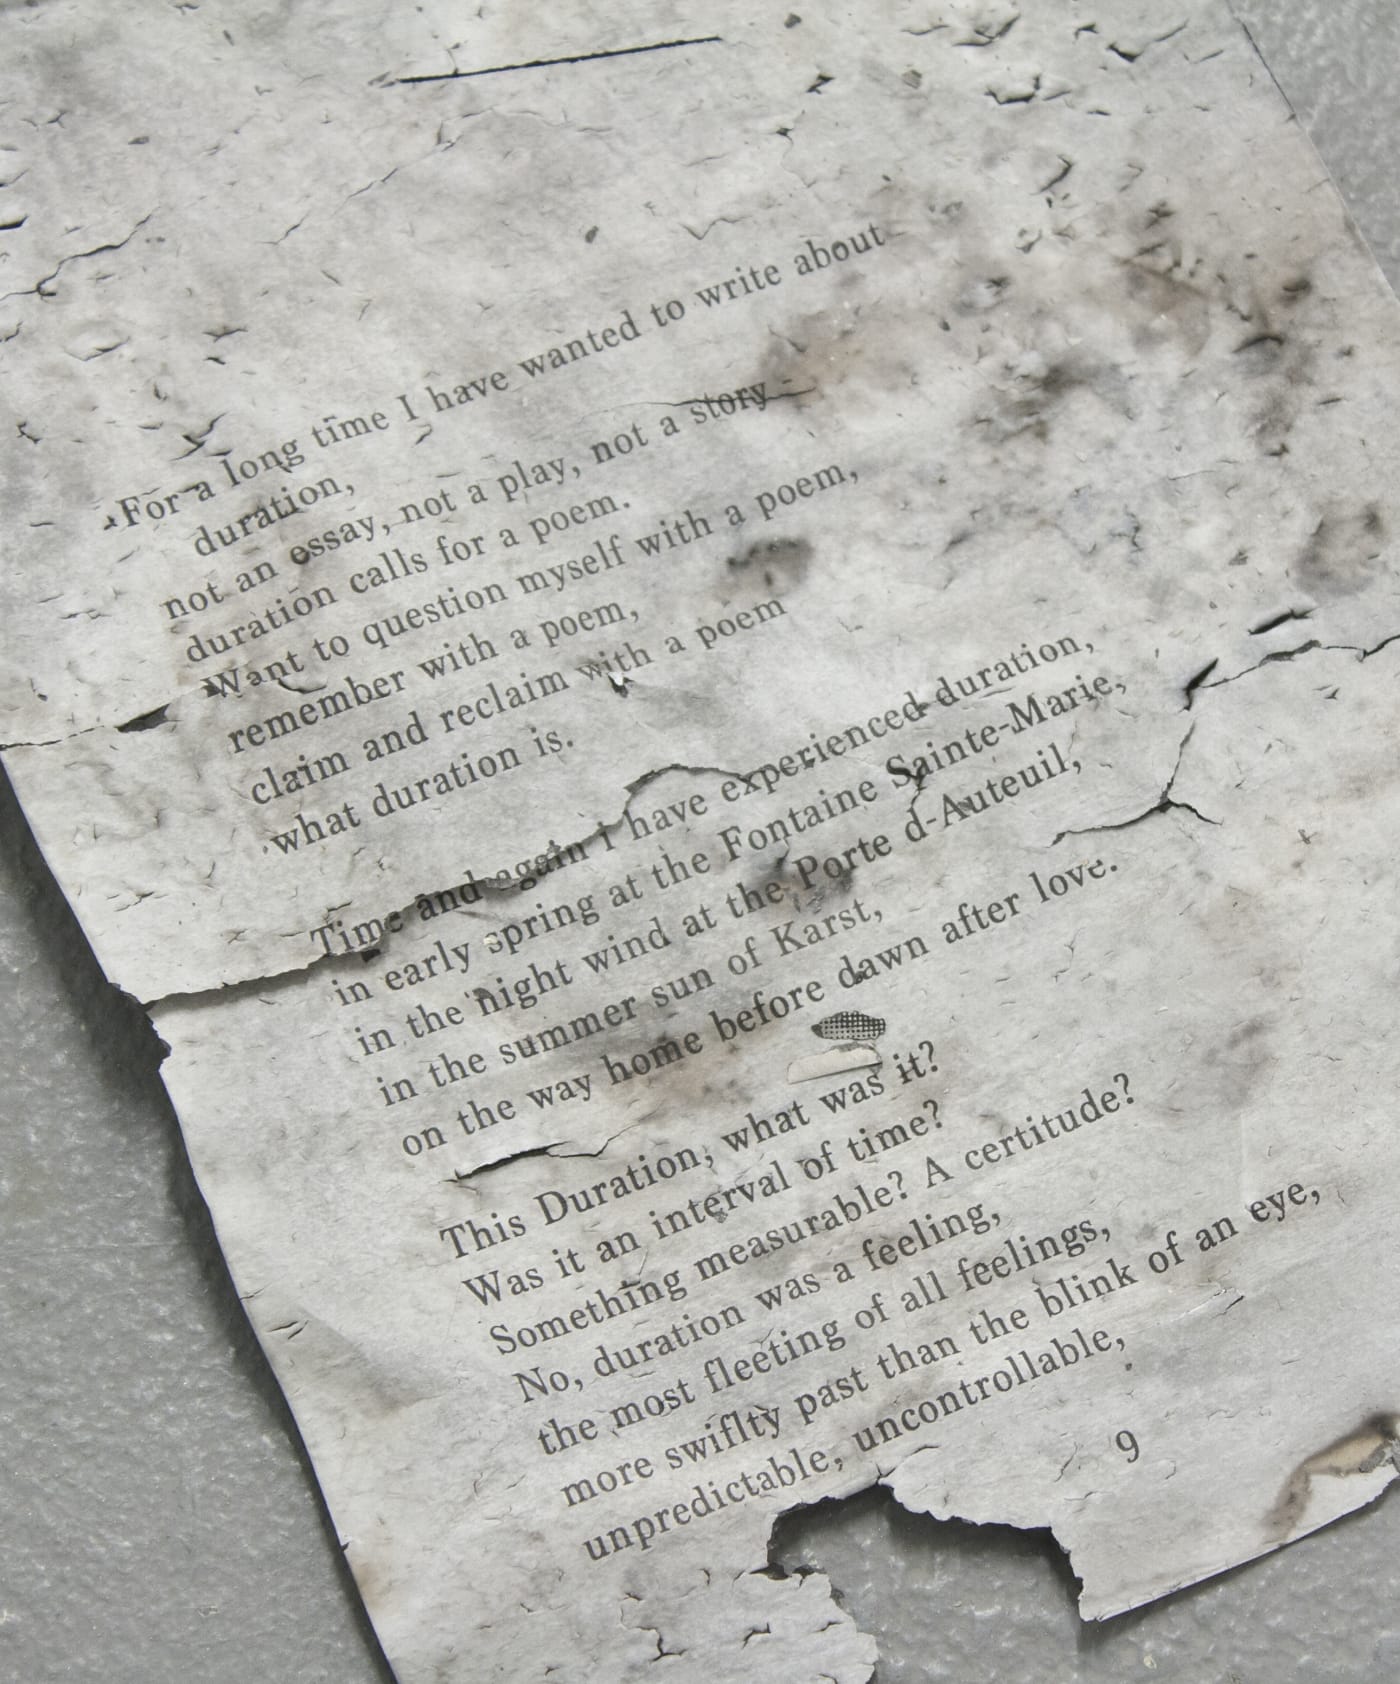 For a long time I have wanted to write about
duration,
not an essay, not a play, not a story -
duration calls for a poem.
Want to question myself with a poem,
remember with a poem,
claim and reclaim with a poem
what duration is.
Time and again i have experienced duration,
in early spring at the Fontaine Sainte-Marie,
in the night wind at the Porte d-Auteuil,
in the summer sun of Karst,
on the way home before dawn after love.
This Duration, what was it?
Was it an interval of time?
Something measurable? A certitude?
No, duration was a feeling,
the most fleeting of all feelings,
more swiflty past than the blink of an eye,
unpredictable, uncontrollable,
9